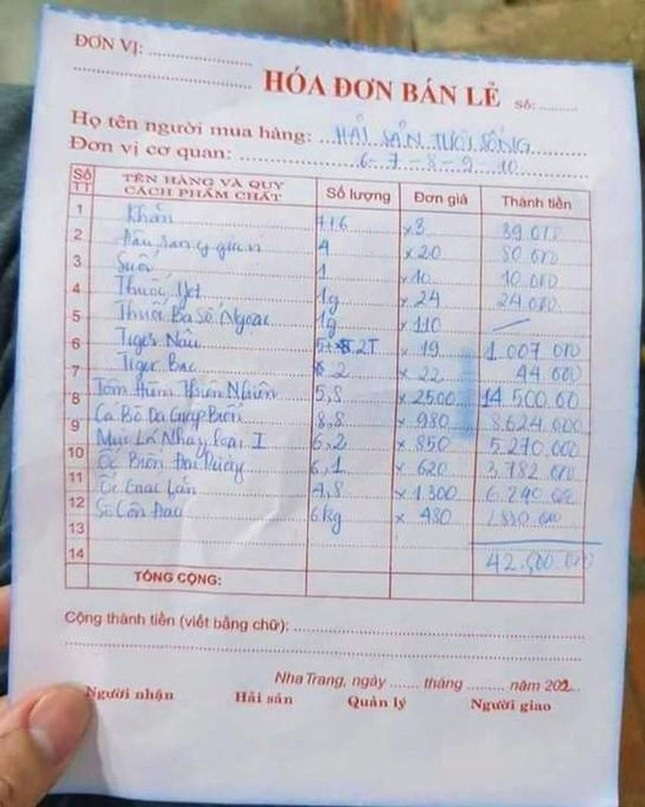 ĐƠN VỊ: ....................
HÓA ĐƠN BÁN LẺ Số: .........
Họ tên người mua hàng: HẢI SẢN TƯƠI SỐNG
Đơn vị cơ quan: 6-7-8-9-10
Số TT TÊN HÀNG VÀ QUY CÁCH PHẨM CHẤT Số lượng Đơn giá Thành tiền
1 Khăn x3 39.000
2 4 x20 80.000
3 Suối 1 x10 10.000
4 Thuốc 1g x24 24.000
5 Thuốc Ba Số Ngoại 1g x110
6 Tiger Nâu 2T x 19 1.007 000
7 Tiger Bạc 2 x 22 44 000
8 Tôm Hùm Thiên Nhiên 5,8 x 2500 14 500.00
9 Cá Bò Da Giáp Biển 8,8 x 980 8.624.000
10 Mực Lá Nháy loại I 6,2 x 850 5.270.000
11 Ốc Biển 6,1 x 620 3.782 000
12 Ốc 4,8 x 1300 6.240 000
13 6kg x 480 2880 000
14 42.500 000
TỔNG CỘNG:
Cộng thành tiền (viết bằng chữ): ....................
Nha Trang, ngày ....... tháng ......... năm 202..
Người nhận Hải sản Quản lý Người giao